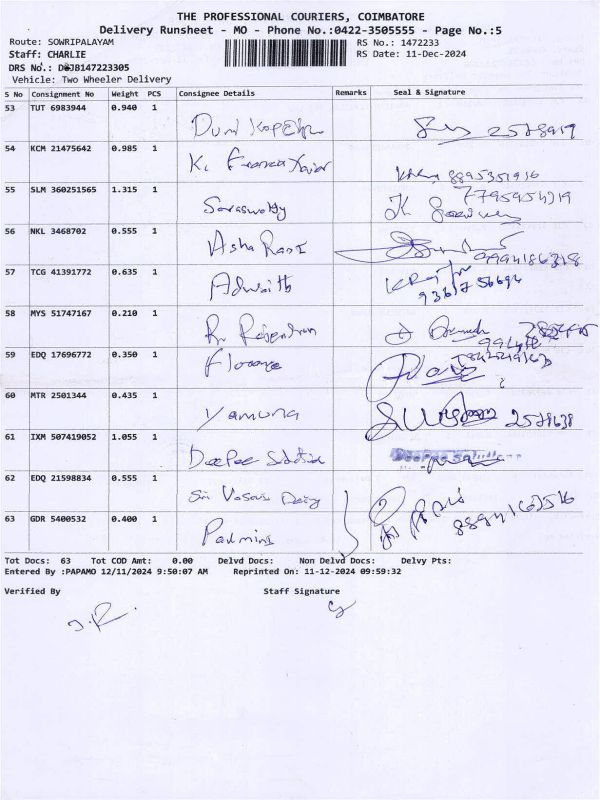 THE PROFESSIONAL COURIERS, COIMBATORE
Delivery Runsheet - MO - Phone No.:0422-3505555 - Page No.:5
Route: SOWRIPALAYAM RS No.: 1472233
Staff: CHARLIE RS Date: 11-Dec-2024
DRS No.: DOJB147223305
Vehicle: Two Wheeler Delivery
S No Consignment No Weight PCS Consignee Details Remarks Seal & Signature
53 TUT 6983944 0.940 1
54 KCM 21475642 0.985 1 K. Francis Xavier
8895351916
55 SLM 360251565 1.315 1 Saraswathy
56 NKL 3468702 0.555 1 Asha Rani
57 TCG 41391772 0.635 1 Adwaith
58 MYS 51747167 0.210 1
59 EDQ 17696772 0.350 1 Florance
60 MTR 2501344 0.435 1 Yamuna 2578638
61 IXM 507419052 1.055 1 Deepee
62 EDQ 21598834 0.555 1 Sri Vasavi Dairy
63 GDR 5400532 0.400 1 Padmini
Tot Docs: 63 Tot COD Amt: 0.00 Delvd Docs: Non Delvd Docs: Delvy Pts:
Entered By :PAPAMO 12/11/2024 9:50:07 AM Reprinted On: 11-12-2024 09:59:32
Verified By Staff Signature